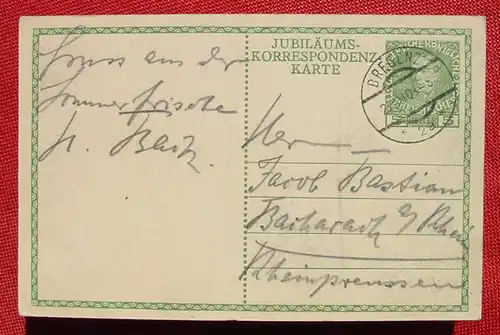 Gruss aus der
Sommerfrische
JUBILÄUMS-
KORRESPONDENZ-
KARTE
BREGENZ
Herrn
Jacob Bastian
Bacharach a/Rhein
Rheinpreussen